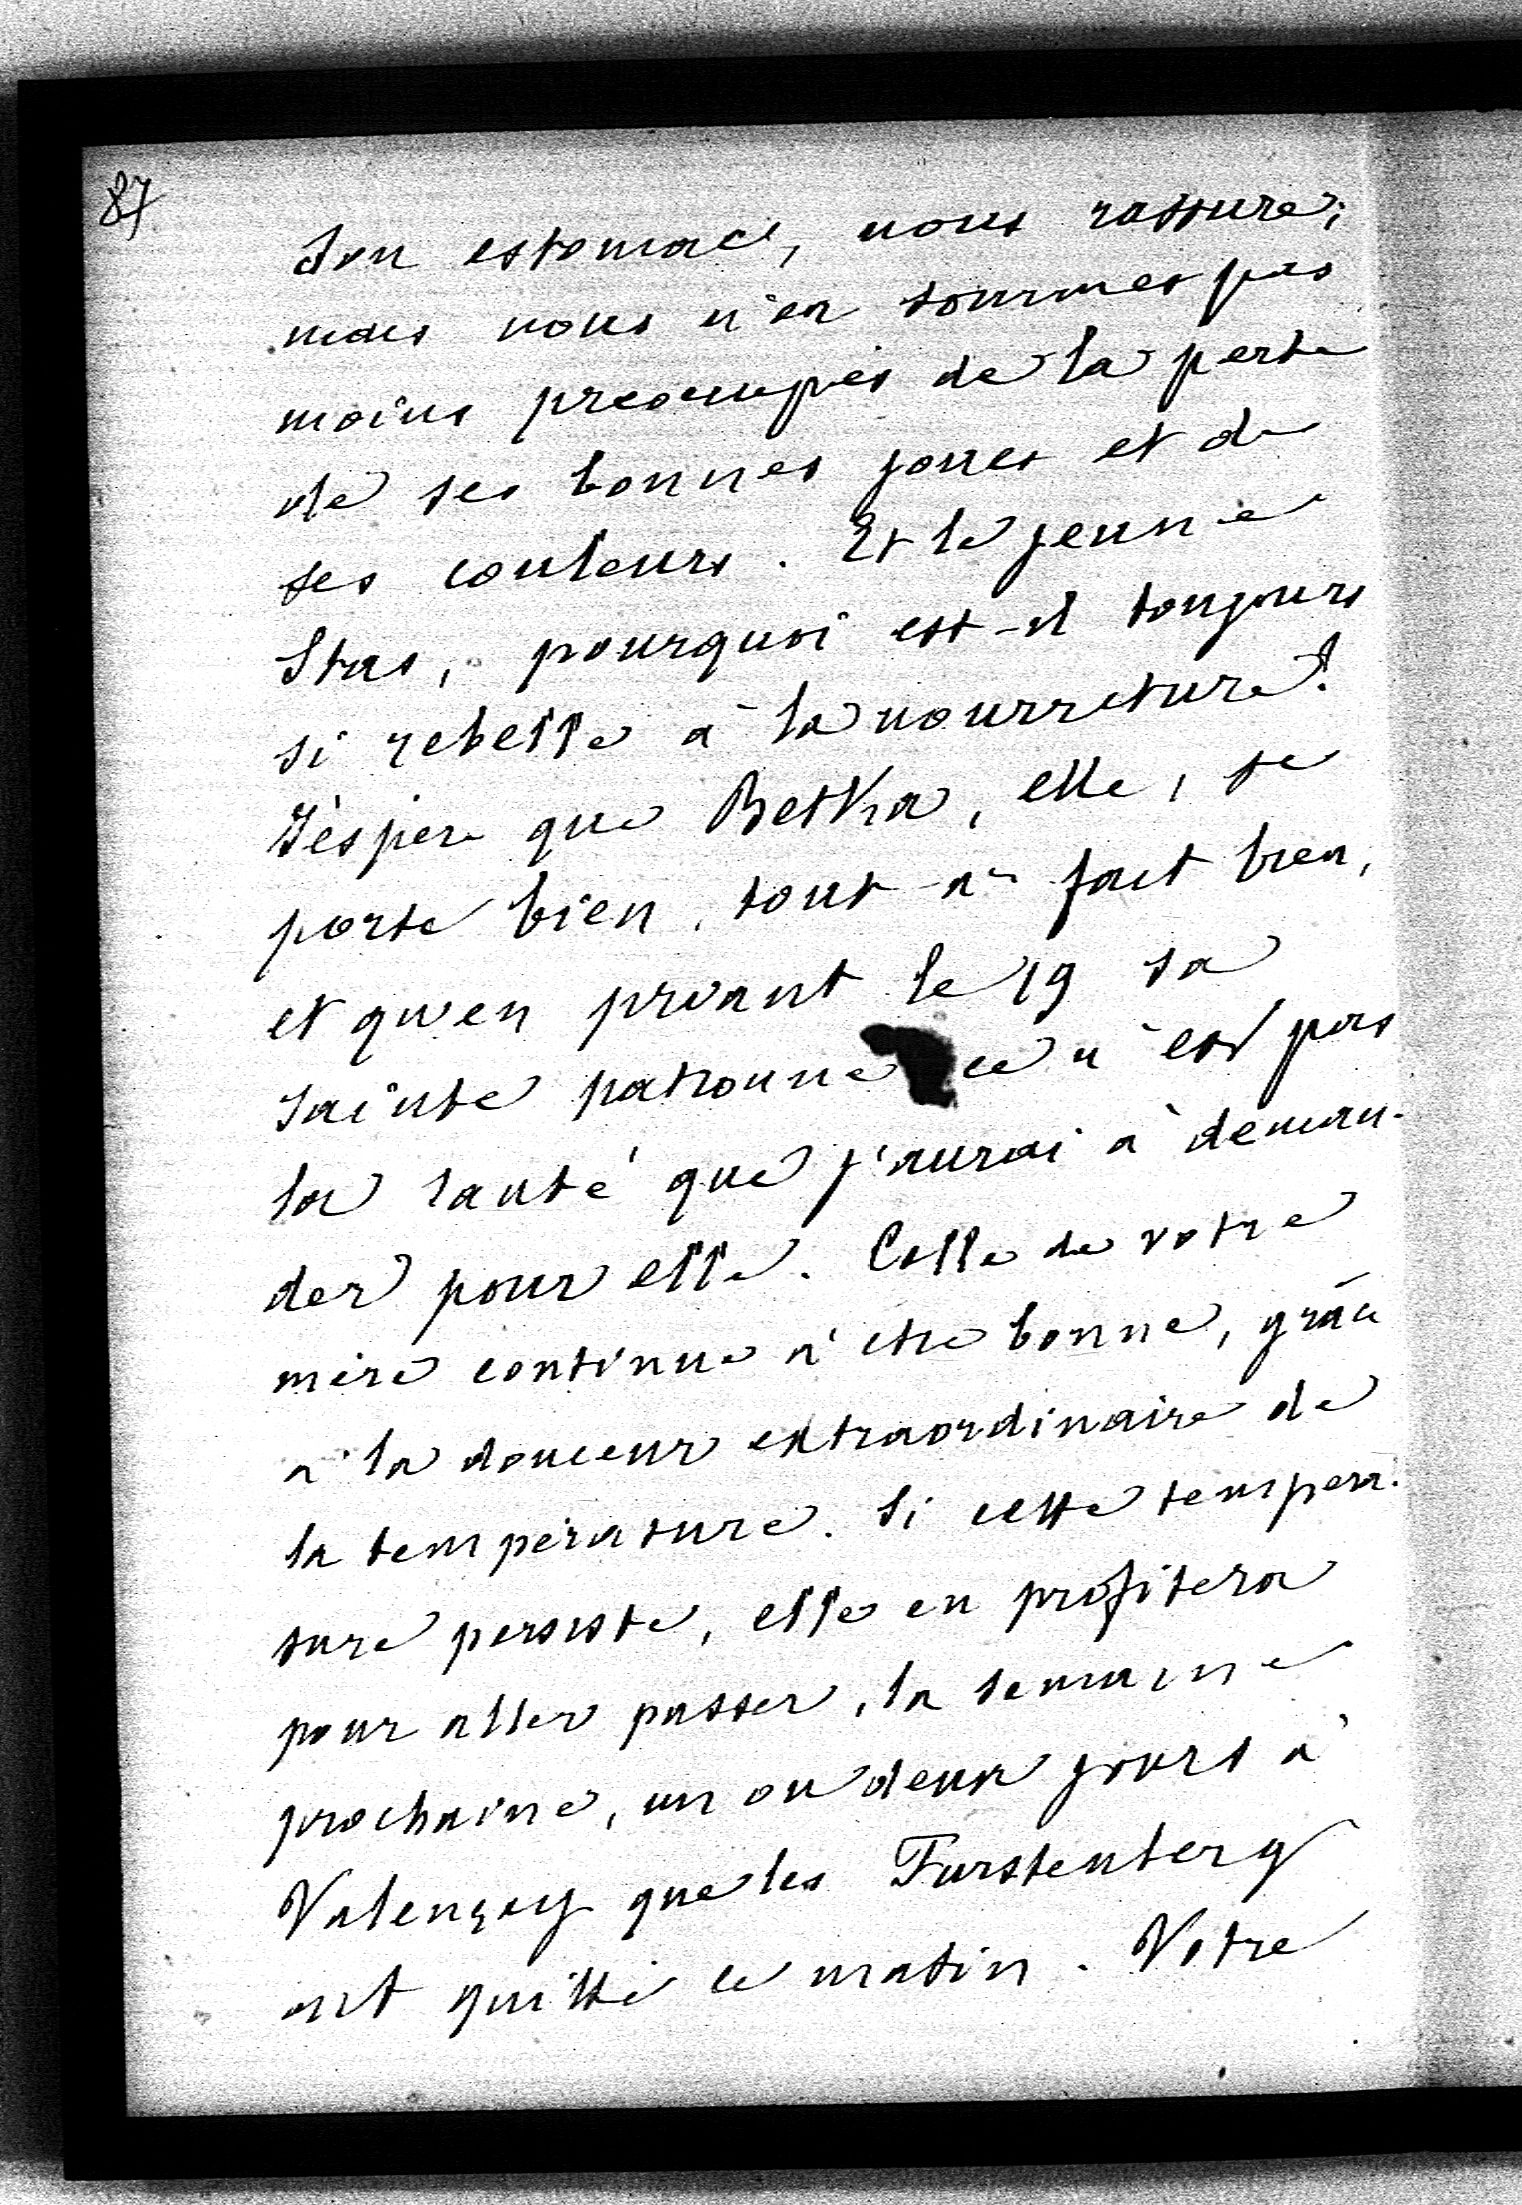 87
son estomac, nous rassure;
mais nous n'en sommes pas
moins préoccupés de la perte
de ses bonnes joues et de
ses couleurs. Et le jeune
Stas, pourquoi est-il toujours
si rebelle à la nourriture?
J'éspere que Betka, elle, se
porte bien, tout-à-fait bien,
et qu'en priant le 19 sa
sainte patronne ce n'est pas
la santé que j'aurai à deman-
der pour elle. Celle de votre
mère continue à être bonne, grâce
à la douceur extraordinaire de
la température. Si cette tempera-
ture persiste, elle en profitera
pour aller passer, la semaine
prochaine, un ou deux jours à
Valençay que les Furstenberg
ont quitté ce matin. Votre